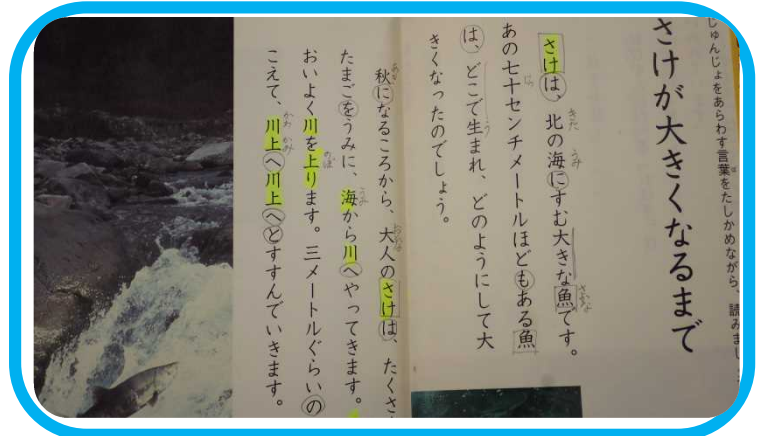 じゅんじょをあらわす言葉をたしかめながら、読みまし
さけが大きくなるまで
さけは、北の海にすむ大きな魚です。
あの七十センチメートルほどもある魚
は、どこで生まれ、どのようにして大
きくなったのでしょう。
秋になるころから、大人のさけは、たくさ
たまごをうみに、海から川へやってきます。
おいよく川を上ります。三メートルぐらいの
こえて、川上へ川上へとすすんでいきます。